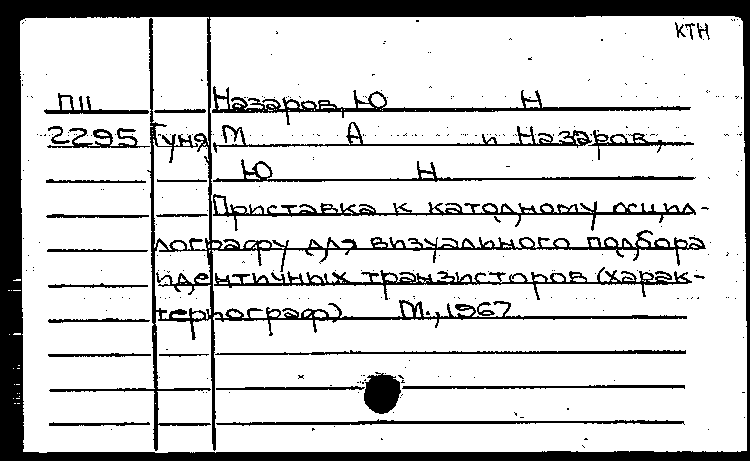 КТН
П11 Назаров, Ю Н
2295 Гуня, М А и Назаров,
Ю Н
Приставка к катодному осцил-
лографу для визуального подбора
идентичных транзисторов (харак-
териограф). М., 1967